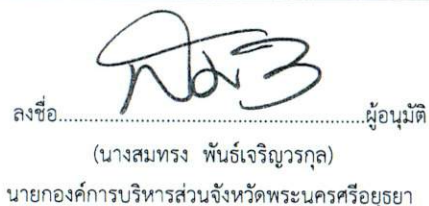 ลงชื่อ....................................................ผู้อนุมัติ
(นางสมทรง พันธ์เจริญวรกุล)
นายกองค์การบริหารส่วนจังหวัดพระนครศรีอยุธยา